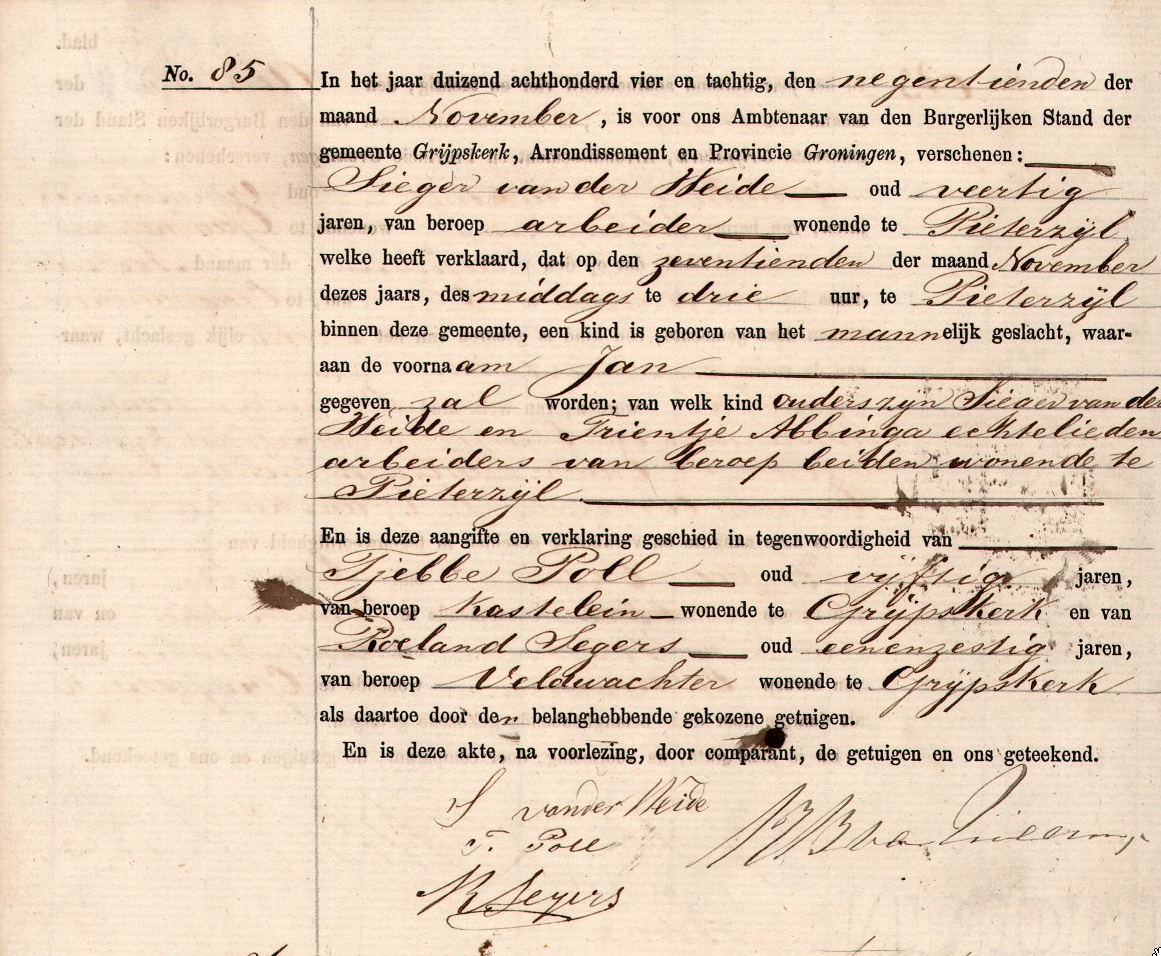 No. 85
In het jaar duizend achthonderd vier en tachtig, den negentienden der
maand November, is voor ons Ambtenaar van den Burgerlijken Stand der
gemeente Grijpskerk, Arrondissement en Provincie Groningen, verschenen:
Sieger van der Weide oud veertig
jaren, van beroep arbeider wonende te Pieterzijl
welke heeft verklaard, dat op den zeventienden der maand November
dezes jaars, des middags te drie uur, te Pieterzijl
binnen deze gemeente, een kind is geboren van het mannelijk geslacht, waar-
aan de voornaam Jan
gegeven zal worden; van welk kind ouders zijn Sieger van der
Weide en Trientje Abbinga echtelieden
arbeiders van beroep beiden wonende te
Pieterzijl
En is deze aangifte en verklaring geschied in tegenwoordigheid van
Tjebbe Poll oud vijftig jaren,
van beroep Kastelein wonende te Grijpskerk en van
Roeland Segers oud eenenzestig jaren,
van beroep Veldwachter wonende te Grijpskerk
als daartoe door den belanghebbende gekozene getuigen.
En is deze akte, na voorlezing, door comparant, de getuigen en ons geteekend.
S van der Weide
T. Poll
R Segers